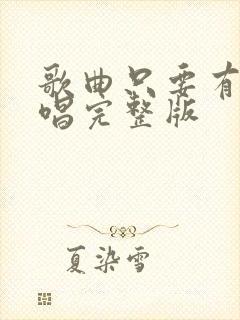 歌曲只要有
唱完整版
夏染雪